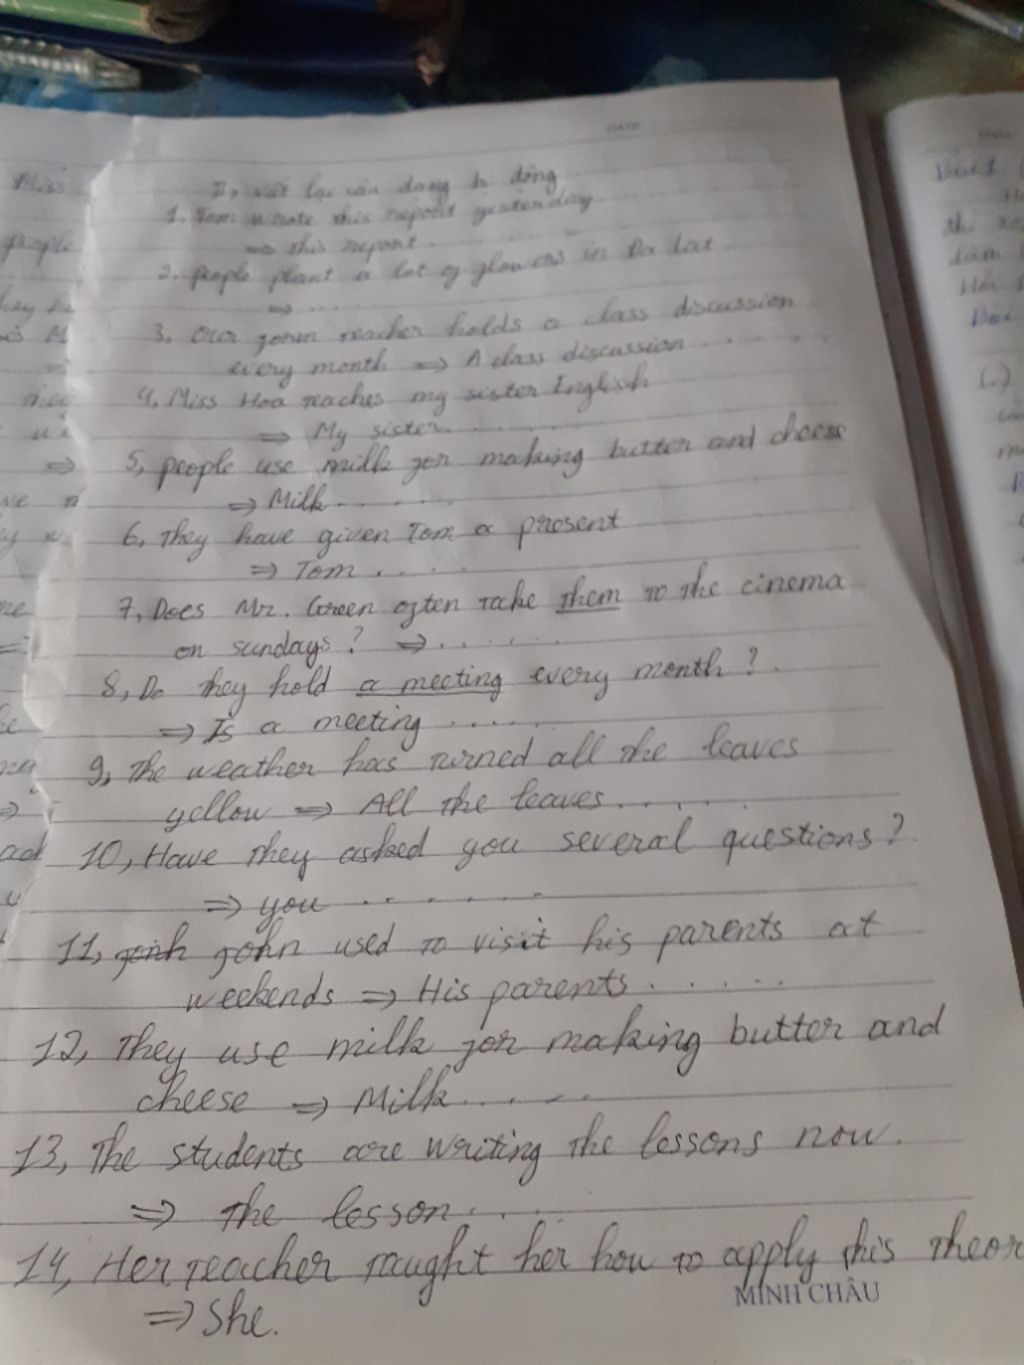 DATE
II, viết lại câu dạng bị động
1. Tom wrote this report yesterday
⇒ this report .
2. people plant a lot of flowers in Da Lat .
⇒ . . . . .
3. Our form teacher holds a class discussion
every month ⇒ A class discussion . . . . . .
4, Miss Hoa teaches my sister English
⇒ My sister. . . . .
5, people use milk for making butter and cheese
⇒ Milk . . . . . .
6, They have given Tom a present
⇒ Tom . . . . .
7, Does Mr. Green often take them to the cinema
on sundays? ⇒ . . . . . .
8, Do they hold a meeting every month ? .
⇒ Is a meeting . . . . .
9, The weather has turned all the leaves
yellow ⇒ All the leaves . . . . .
10, Have they asked you several questions?
⇒ you . . . . . .
11, John used to visit his parents at
weekends ⇒ His parents . . . . . .
12, They use milk for making butter and
cheese ⇒ Milk . . . . .
13, The students are writing the lessons now.
⇒ the lesson . . .
14, Her teacher taught her how to apply this theor
MINH CHÂU
⇒ She.